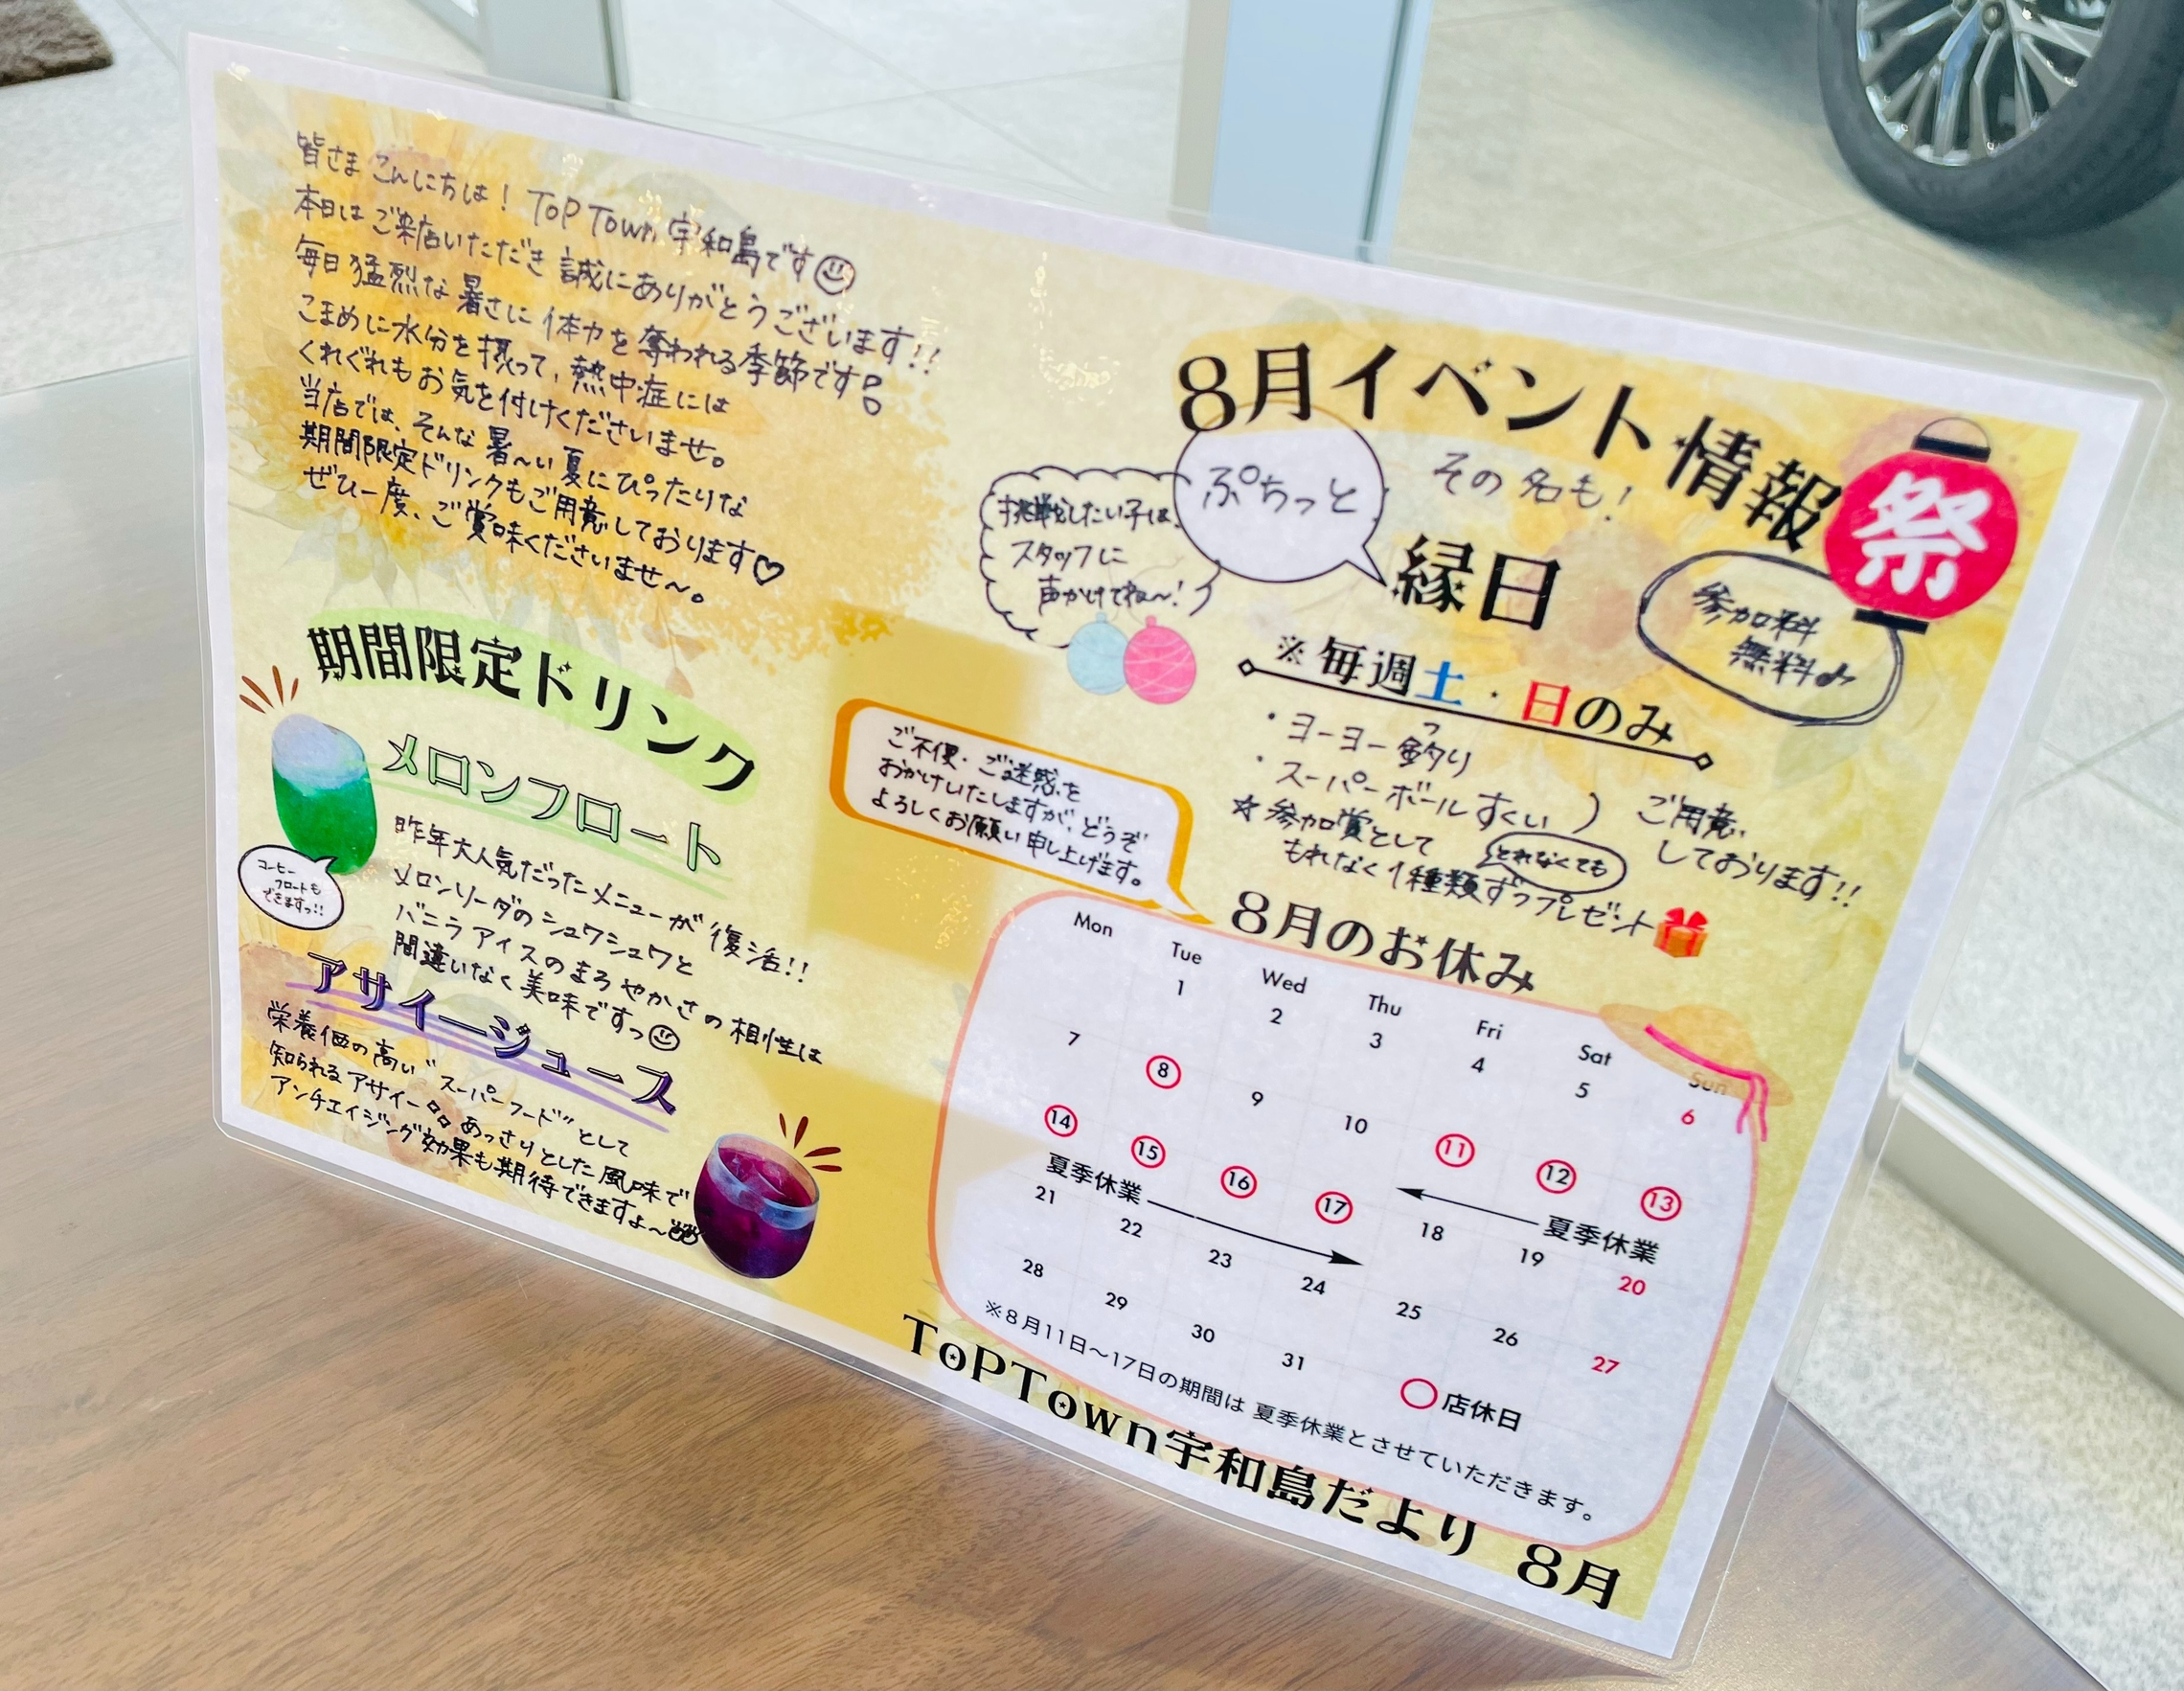 皆さま こんにちは！ ToP Town 宇和島です
本日は ご来店いただき 誠にありがとうございます!!
毎日 猛烈な 暑さに 体力を 奪われる 季節です!
こまめに水分を摂って、熱中症には
くれぐれもお気を付けくださいませ。
当店では、そんな 暑〜い 夏に ぴったりな
期間限定ドリンクもご用意しております♡
ぜひ一度、ご賞味くださいませ〜。
期間限定ドリンク
メロンフロート
昨年大人気だったメニューが 復活!!
メロンソーダの シュワシュワと
バニラアイスのまろやかさの相性は
間違いなく美味ですっ
コーヒー
フロートも
できますっ!!
アサイージュース
栄養価の高い“スーパーフード”として
知られるアサイー あっさりとした風味で
アンチエイジング効果も期待できますよ〜
8月イベント情報
祭
その名も！
ぷちっと
縁日
挑戦したい子は、
スタッフに
声かけてね〜！
参加料
無料♪
※毎週土・日のみ
・ヨーヨー釣り
つ
・スーパーボールすくい
ご用意
しております!!
☆参加賞として
とれなくても
もれなく1種類ずつプレゼント
ご不便・ご迷惑を
おかけいたしますが、どうぞ
よろしくお願い申し上げます。
8月のお休み
Mon Tue Wed Thu Fri Sat Sun
1 2 3 4 5 6
7 8 9 10 11 12 13
夏季休業
14 15 16 17 18 19 20
夏季休業
21 22 23 24 25 26 27
28 29 30 31
○店休日
※8月11日〜17日の期間は 夏季休業とさせていただきます。
ToPTown宇和島だより 8月